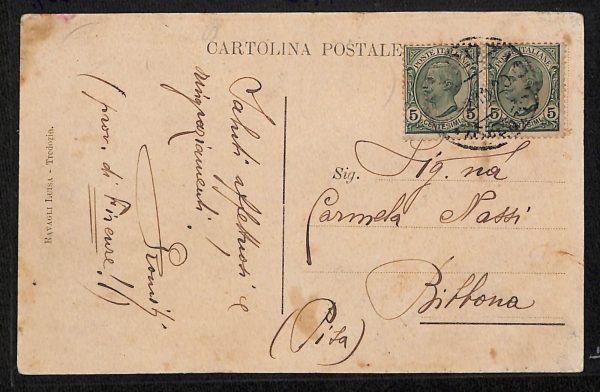 CARTOLINA POSTALE
POSTE ITALIANE
5 5
CENTESIMI
POSTE ITALIANE
5 5
CENTESIMI
Saluti affettuosi e
ringraziamenti.
(prov. di Firenze!)
RAVAGLI LUISA - Tredozio.
Sig. Sig.na
Carmela Nassi
Bibbona
(Pisa)